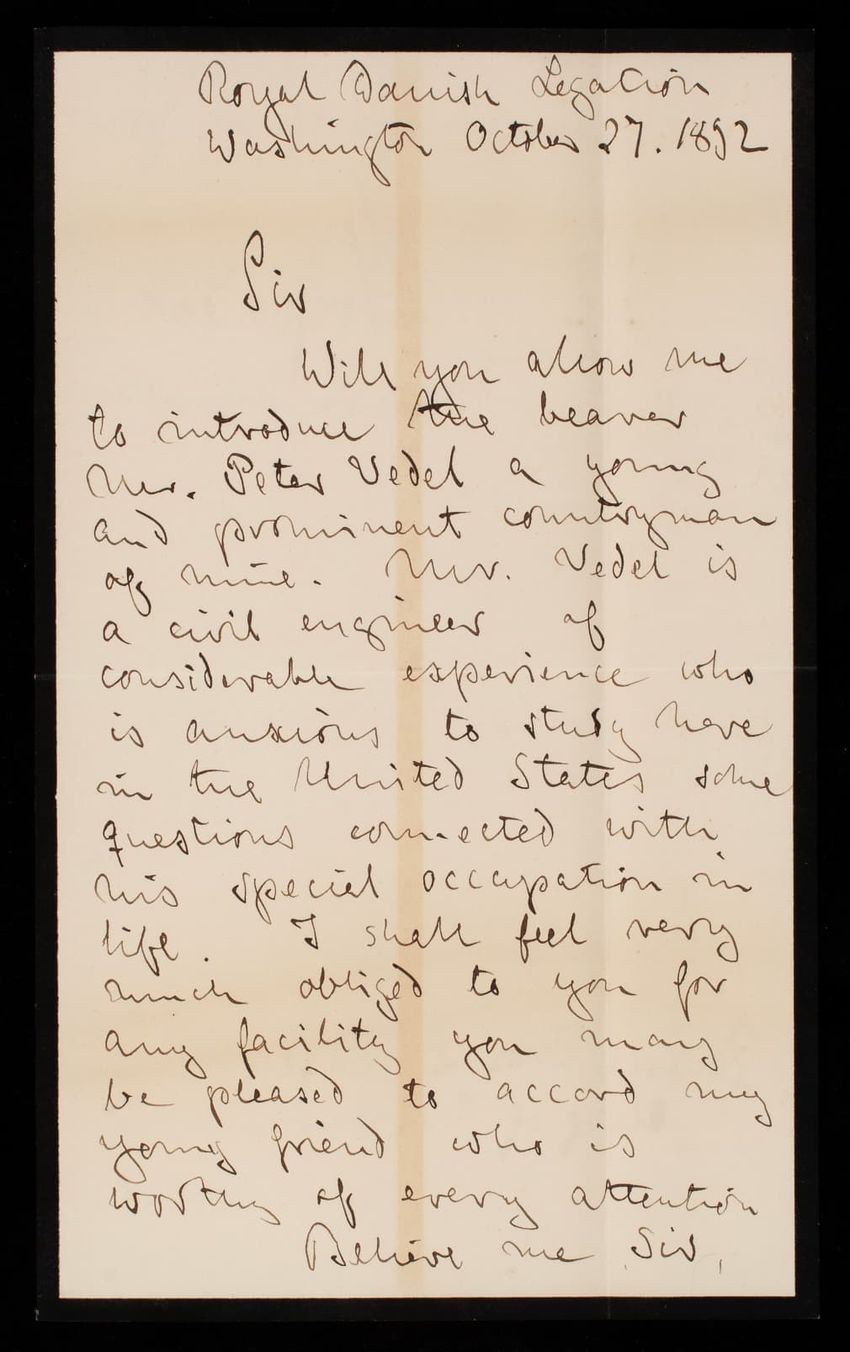 Royal Danish Legation
Washington October 27. 1892
Sir
Will you allow me
to introduce the bearer
Mr. Peter Vedel a young
and prominent countryman
of mine. Mr. Vedel is
a civil engineer of
considerable experience who
is anxious to study here
in the United States some
questions connected with
his special occupation in
life. I shall feel very
much obliged to you for
any facility you may
be pleased to accord my
young friend who is
worthy of every attention
Believe me Sir,